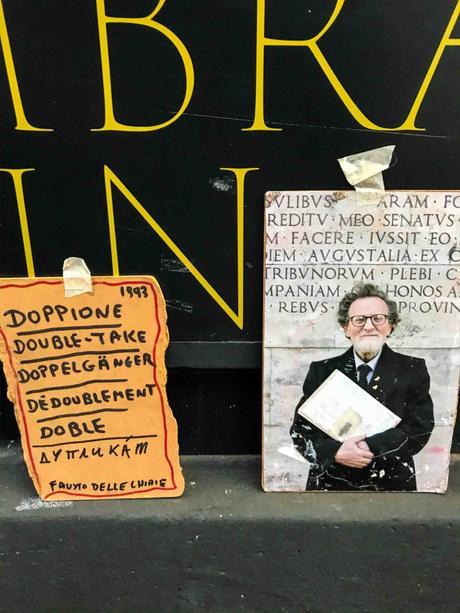 BRA
IN
1993
DOPPIONE
DOUBLE-TAKE
DOPPELGÄNGER
DÉDOUBLEMENT
DOBLE
ДУПЛИКÁТ
FAUSTO DELLE CHIAIE
SVLIBVS · ARAM · FO
REDITV · MEO · SENATVS
M · FACERE · IVSSIT · EO
DIEM · AVGVSTALIA · EX · C
TRIBVNORVM · PLEBI · C
MPANIAM · HONOS · A
REBVS · PROVIN